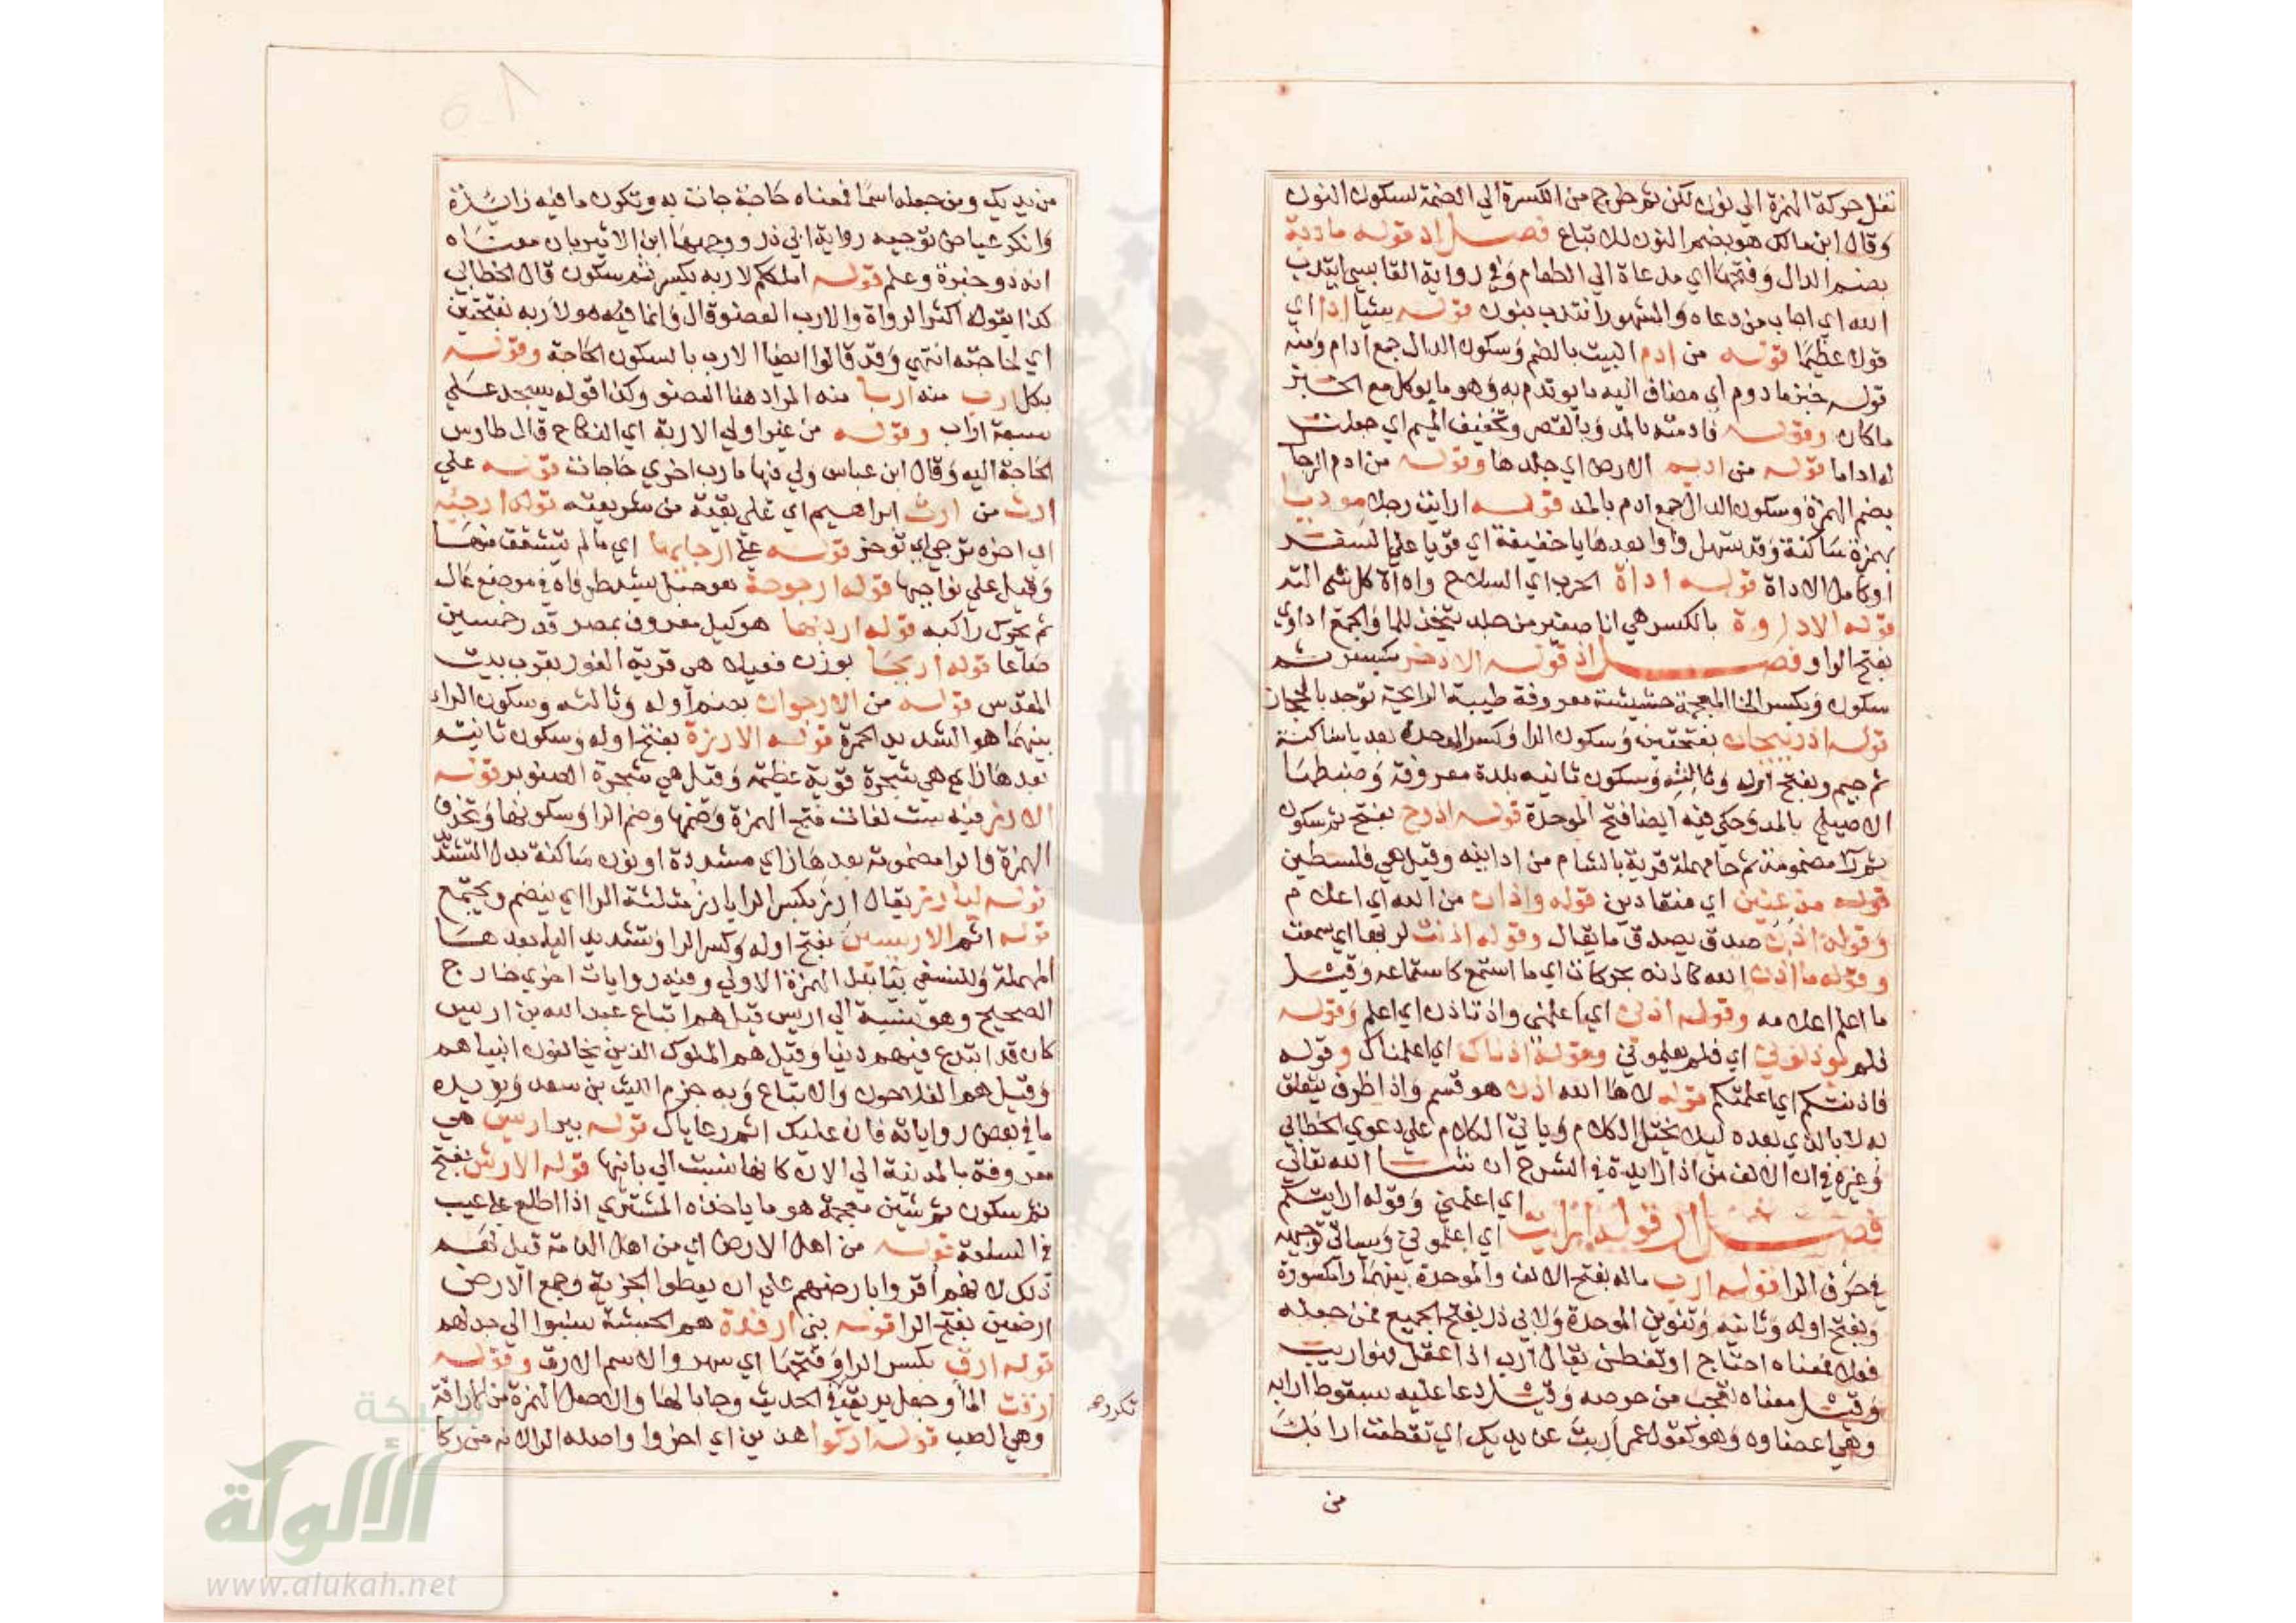 نقل حركة الهمزة الي نون لكن ثم طرح من الكسرة الي الضمة لسكون النون
وقال ابن مالك هو بضم النون للاتباع فصل اد قوله مادبة
بضم الدال وفتحها اي مدعاة الي الطعام وفي رواية القابسي ايتدب
الله اي اجاب من دعاه والمشهور انتدب بنون قوله شيا ادا اي
قولا عظيما قوله من ادم البيت بالضم وسكون الدال جمع ادام ومنه
قوله خبز مادوم اي مضاف اليه ما يوتدم به وهو ما يوكل مع الخبز
ما كان وقوله فادمته بالمد وبالقصر وتخفيف الميم اي جعلت
له اداما قوله من اديم الارض اي جلدها وقوله من ادم
بضم الهمزة وسكون الدال جمع ادم بالمد قوله ارايت رجلا موديا
بهمزة ساكنة وقد تسهل واوا بعدها يا خفيفة اي قويا علي السفر
او كامل الاداة قوله اداة الحرب اي السلاح واداة كل شي الته
قوله الاداوة بالكسر هي انا صغير من جلد يتخذ للما والجمع اداوي
بفتح الواو فصل اذ قوله الاذخر بكسر ثم
سكون وبكسر الخا المعجمة حشيشة معروفة طيبة الرايحة توجد بالحجاز
قوله اذربيجان بفتحتين وسكون الرا وكسر الموحدة بعد يا ساكنة
ثم جيم وبفتح اوله وثالثه وسكون ثانيه بلدة معروفة وضبطها
الاصيلي بالمد وحكي فيه ايضا فتح الموحدة قوله اذرح بفتح ثم سكون
ثم را مضمومة ثم حا مهملة قرية بالشام من ادانيه وقيل هي فلسطين
قوله مذعنين اي منقادين قوله واذان من الله اي اعلام
وقوله اذن صدق يصدق ما يقال وقوله اذنت لربها اي سمعت
وقوله ما اذن الله كاذنه بحركات اي ما استمع كاستماعه وقيل
ما اعلم اعلامه وقوله اذني اي اعلمني واذ تاذن اي اعلم وقوله
فلم توذنوني اي فلم تعلموني وقوله اذناك اي اعلمناك وقوله
فاذنتكم اي اعلمتكم قوله لاها الله اذن هو قسم واذا ظرف يتعلق
له لا بالذي بعده ليلا يختل الكلام وياتي الكلام علي دعوي الخطابي
وغيره في ان الالف من اذا زايدة في الشرح ان شا الله تعالي
فصل ار قوله ارايت اي اعلمني وقوله ارايتكم
اي اعلموني وسياتي توجيهه
في حرف الرا قوله ارب ماله بفتح الالف والموحدة بينهما را مكسورة
وبفتح اوله وثانيه وتنوين الموحدة ولابي ذر بفتح الجميع فمن جعله
فعلا فمعناه احتاج او تفطن يقال ارب اذا عقل فهو اريب
وقيل معناه تعجب من حرصه وقيل دعا عليه بسقوط ارابه
وهي اعضاوه وهو كقول عمر اربت عن يديك اي تقطعت ارابك
من
من يديك ومن جعله اسما فمعناه حاجة جات به وتكون ما فيه زايدة
وانكر عياض توجيه رواية ابي ذر ووجهها ابن الاثير بان معناه
انه ذو خبرة وعلم قوله املككم لاربه بكسر ثم سكون قال الخطابي
كذا يقوله اكثر الرواة والارب العضو قال وانما هو لاربه بفتحتين
اي لحاجته انتهي وقد قالوا ايضا الارب بالسكون الحاجة وقوله
بكل ارب منه اربا منه المراد هنا العضو وكذا قوله يسجد علي
سبعة اراب وقوله من غير اولي الاربة اي النكاح قال طاوس
الحاجة اليه وقال ابن عباس ولي فيها مارب اخري حاجات قوله علي
ارث من ارث ابراهيم اي علي بقية من شريعته قوله ارجئه
اي اخره ترجي اي توخر قوله علي ارجايها اي ما لم يتشقق منها
وقيل علي نواحيها قوله ارجوحة هو حبل يشد طرفاه في موضع عال
ثم يحرك راكبه قوله اردبها هو كيل معروف بمصر قدر خمسين
صاعا قوله اريحا بوزن فعيلا هي قرية الغور بقرب بيت
المقدس قوله من الارجوان بضم اوله وثالثه وسكون الرا
بينهما هو الشديد الحمرة قوله الارزة بفتح اوله وسكون ثانيه
بعدها زاي هي شجرة قوية عظيمة وقيل هي شجرة الصنوبر قوله
الارز فيه ست لغات فتح الهمزة وضمها وضم الرا وسكونها وتحذف
الهمزة والرا مضمومة بعدها زاي مشددة او نون ساكنة بدل التشديد
قوله ليارز يقال ارز بكسر الرا يارز مثلثة الرا اي ينضم ويجتمع
قوله اثم الاريسيين بفتح اوله وكسر الرا وتشديد اليا بعدها
المهملة وللنسفي بيا بدل الهمزة الاولي وفيه روايات اخري خارج
الصحيح وهو نسبة الي اريس قيل هم اتباع عبد الله بن اريس
كان قد ابتدع فيهم دينا وقيل هم الملوك الذين يخالفون انبياهم
وقيل هم الفلاحون والاتباع وبه جزم الليث بن سعد ويويده
ما في بعض رواياته فان عليك اثم رعاياك قوله بير اريس هي
معروفة بالمدينة الي الان كانها نسبت الي بانيها قوله الارش بفتح
ثم سكون ثم شين معجمة هو ما ياخذه المشتري اذا اطلع علي عيب
في السلعة قوله من اهل الارض اي من اهل الذمة قيل لهم
ذلك لانهم اقروا بارضهم علي ان يعطوا الجزية وجمع الارض
ارضين بفتح الرا قوله بني ارفدة هم الحبشة نسبوا الي جدلهم
قوله ارق بكسر الرا وفتحها اي سهر والاسم الارق وقوله
ارقت الما وجعل يريقه في الحديث وجا بالها والاصل الهمزة من الاراقة
وهي الصب قوله اركوا هذين اي اخروا واصله الرا لانه من ركا
تكررهم
شبكة
الألوكة
www.alukah.net